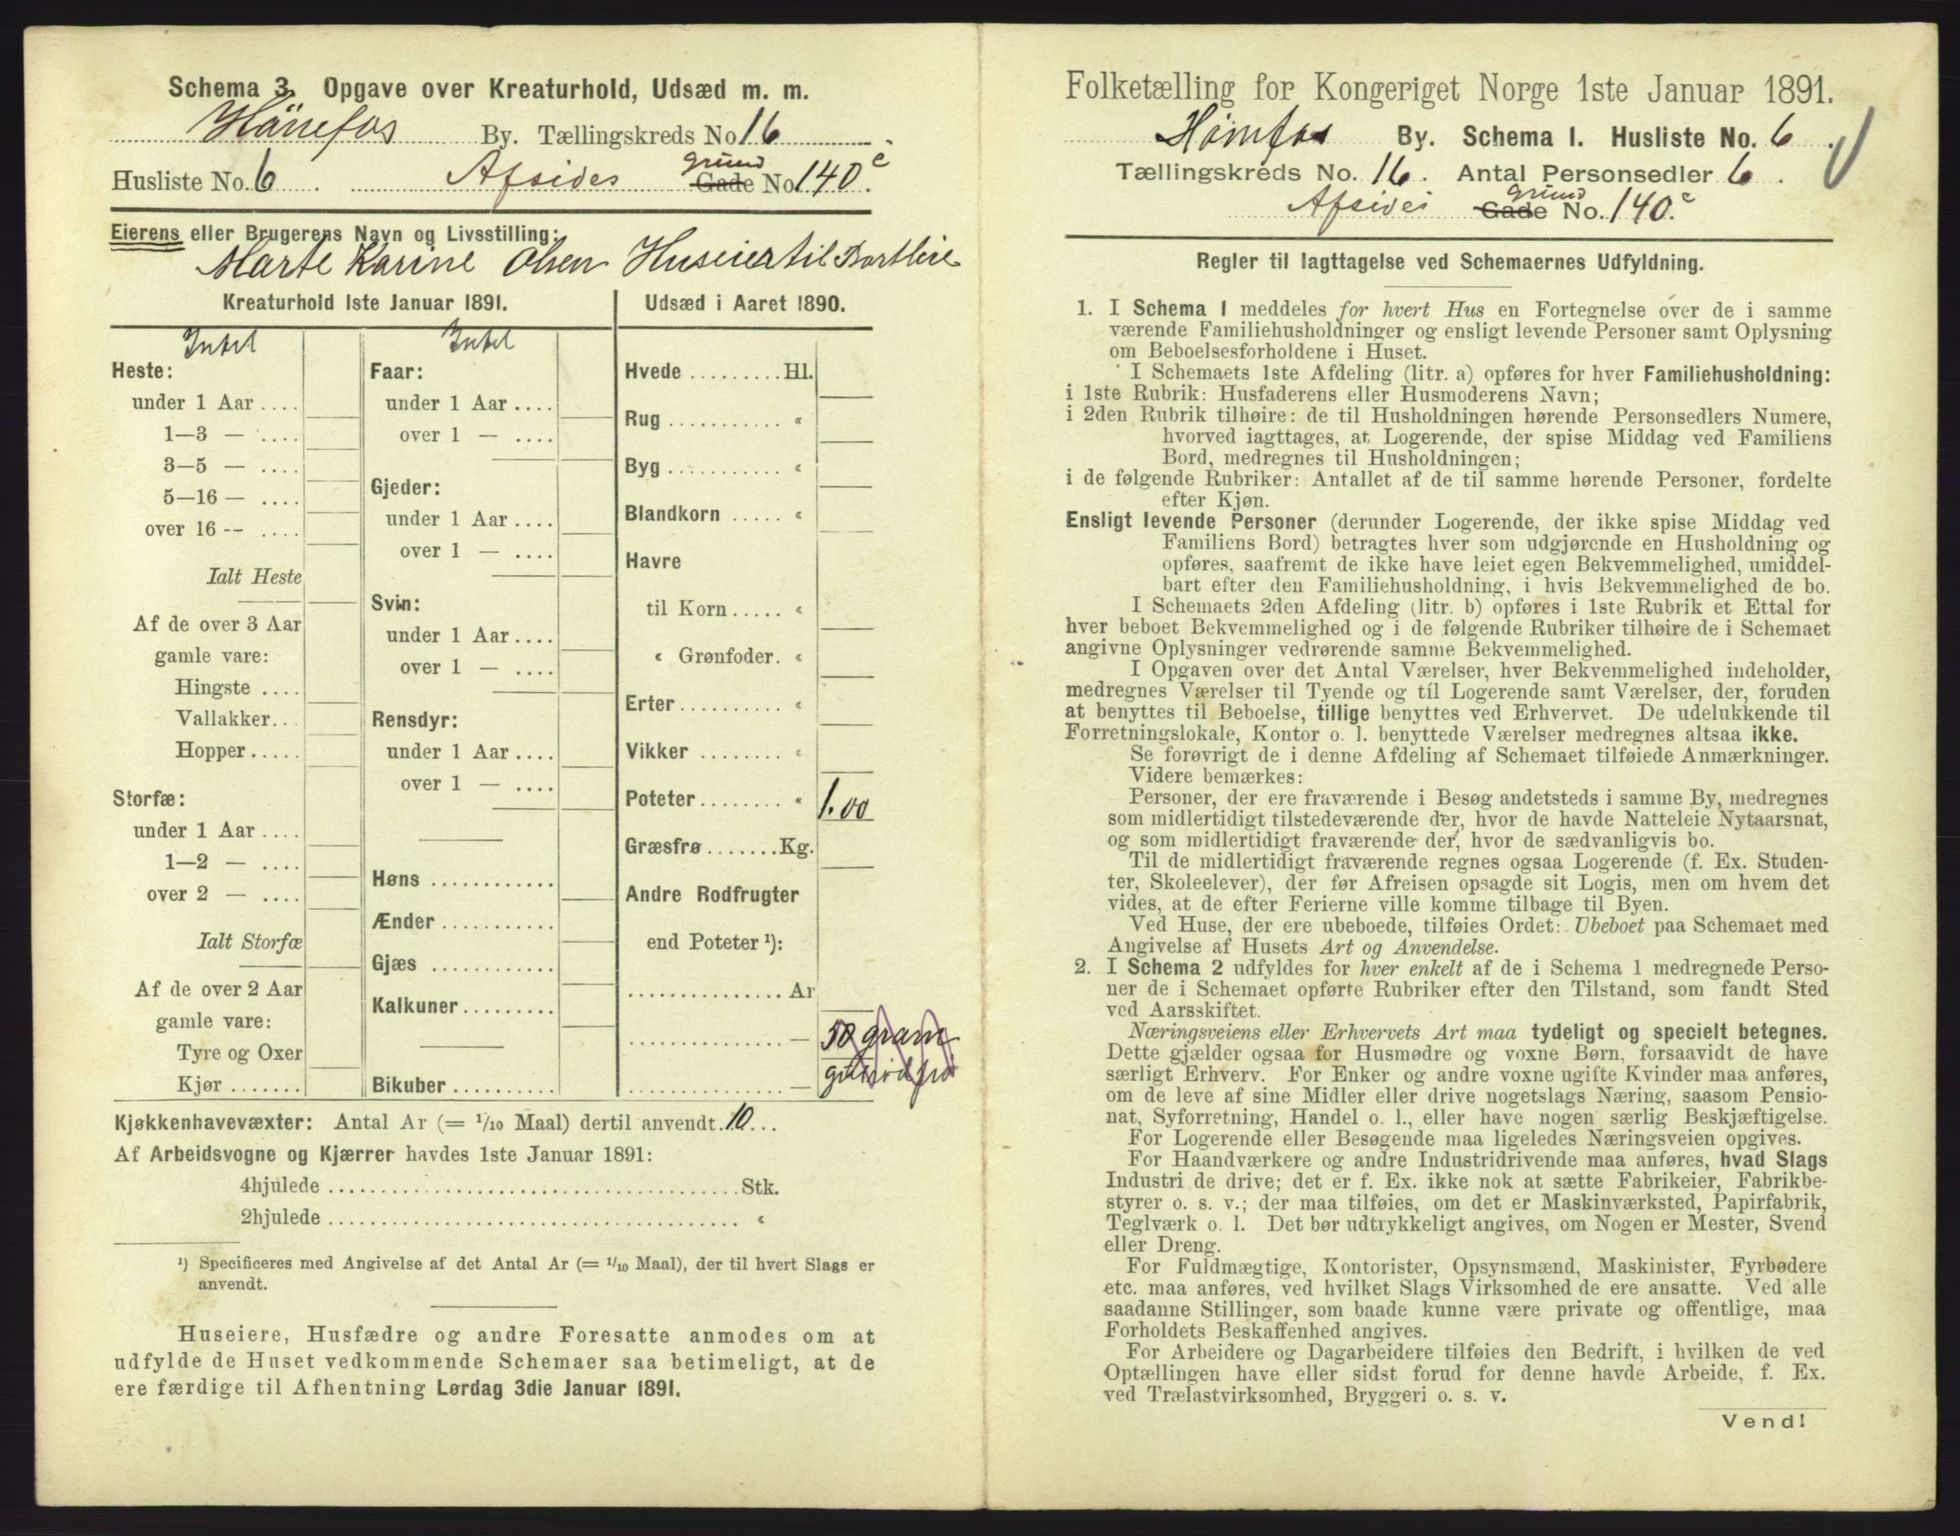 Schema 3. Opgave over Kreaturhold, Udsæd m. m.
Hönefos By. Tællingskreds No 16
Husliste No. 6 . Afsides grund Gade No 140c.
Eierens eller Brugerens Navn og Livsstilling:
Marte Karine Olsen Huseier til Bortleie
Kreaturhold 1ste Januar 1891.
Intet Intet
Heste:
under 1 Aar ....
1—3 — ....
3—5 — ....
5—16 — ....
over 16 -- ....
Ialt Heste
Af de over 3 Aar
gamle vare:
Hingste ....
Vallakker...
Hopper .....
Storfæ:
under 1 Aar ....
1—2 — ....
over 2 — ....
Ialt Storfæ
Af de over 2 Aar
gamle vare:
Tyre og Oxer
Kjør .......
Faar:
under 1 Aar ....
over 1 — ....
Gjeder:
under 1 Aar ....
over 1 — ....
Svin:
under 1 Aar ....
over 1 — ....
Rensdyr:
under 1 Aar ....
over 1 — ....
Høns ............
Ænder ...........
Gjæs ............
Kalkuner.........
Bikuber..........
Udsæd i Aaret 1890.
Hvede .........Hl.
Rug ........... «
Byg ........... «
Blandkorn ..... «
Havre
til Korn..... «
« Grønfoder. «
Erter.......... «
Vikker ........ «
Poteter........ « 1.00
Græsfrø .......Kg.
Andre Rodfrugter
end Poteter ¹):
............... Ar
............... — 50 gram
............... —
Kjøkkenhavevæxter: Antal Ar (= 1/10 Maal) dertil anvendt. 10...
Af Arbeidsvogne og Kjærrer havdes 1ste Januar 1891:
4hjulede .......................................Stk.
2hjulede ....................................... «
¹) Specificeres med Angivelse af det Antal Ar (= 1/10 Maal), der til hvert Slags er
anvendt.
Huseiere, Husfædre og andre Foresatte anmodes om at
udfylde de Huset vedkommende Schemaer saa betimeligt, at de
ere færdige til Afhentning Lørdag 3die Januar 1891.
Folketælling for Kongeriget Norge 1ste Januar 1891.
Hönefos By. Schema I. Husliste No. 6 .
Tællingskreds No. 16. Antal Personsedler 6 .
Afsides grund Gade No. 140.c
Regler til Iagttagelse ved Schemaernes Udfyldning.
1. I Schema I meddeles for hvert Hus en Fortegnelse over de i samme
værende Familiehusholdninger og ensligt levende Personer samt Oplysning
om Beboelsesforholdene i Huset.
I Schemaets 1ste Afdeling (litr. a) opføres for hver Familiehusholdning:
i 1ste Rubrik: Husfaderens eller Husmoderens Navn;
i 2den Rubrik tilhøire: de til Husholdningen hørende Personsedlers Numere,
hvorved iagttages, at Logerende, der spise Middag ved Familiens
Bord, medregnes til Husholdningen;
i de følgende Rubriker: Antallet af de til samme hørende Personer, fordelte
efter Kjøn.
Ensligt levende Personer (derunder Logerende, der ikke spise Middag ved
Familiens Bord) betragtes hver som udgjørende en Husholdning og
opføres, saafremt de ikke have leiet egen Bekvemmelighed, umiddel-
bart efter den Familiehusholdning, i hvis Bekvemmelighed de bo.
I Schemaets 2den Afdeling (litr. b) opføres i 1ste Rubrik et Ettal for
hver beboet Bekvemmelighed og i de følgende Rubriker tilhøire de i Schemaet
angivne Oplysninger vedrørende samme Bekvemmelighed.
I Opgaven over det Antal Værelser, hver Bekvemmelighed indeholder,
medregnes Værelser til Tyende og til Logerende samt Værelser, der, foruden
at benyttes til Beboelse, tillige benyttes ved Erhvervet. De udelukkende til
Forretningslokale, Kontor o. l. benyttede Værelser medregnes altsaa ikke.
Se forøvrigt de i denne Afdeling af Schemaet tilføiede Anmærkninger.
Videre bemærkes:
Personer, der ere fraværende i Besøg andetsteds i samme By, medregnes
som midlertidigt tilstedeværende der, hvor de havde Natteleie Nytaarsnat,
og som midlertidigt fraværende der, hvor de sædvanligvis bo.
Til de midlertidigt fraværende regnes ogsaa Logerende (f. Ex. Studen-
ter, Skoleelever), der før Afreisen opsagde sit Logis, men om hvem det
vides, at de efter Ferierne ville komme tilbage til Byen.
Ved Huse, der ere ubeboede, tilføies Ordet: Ubeboet paa Schemaet med
Angivelse af Husets Art og Anvendelse.
2. I Schema 2 udfyldes for hver enkelt af de i Schema 1 medregnede Perso-
ner de i Schemaet opførte Rubriker efter den Tilstand, som fandt Sted
ved Aarsskiftet.
Næringsveiens eller Erhvervets Art maa tydeligt og specielt betegnes.
Dette gjælder ogsaa for Husmødre og voxne Børn, forsaavidt de have
særligt Erhverv. For Enker og andre voxne ugifte Kvinder maa anføres,
om de leve af sine Midler eller drive nogetslags Næring, saasom Pensio-
nat, Syforretning, Handel o. l., eller have nogen særlig Beskjæftigelse.
For Logerende eller Besøgende maa ligeledes Næringsveien opgives.
For Haandværkere og andre Industridrivende maa anføres, hvad Slags
Industri de drive; det er f. Ex. ikke nok at sætte Fabrikeier, Fabrikbe-
styrer o. s. v.; der maa tilføies, om det er Maskinværksted, Papirfabrik,
Teglværk o. l. Det bør udtrykkeligt angives, om Nogen er Mester, Svend
eller Dreng.
For Fuldmægtige, Kontorister, Opsynsmænd, Maskinister, Fyrbødere
etc. maa anføres, ved hvilket Slags Virksomhed de ere ansatte. Ved alle
saadanne Stillinger, som baade kunne være private og offentlige, maa
Forholdets Beskaffenhed angives.
For Arbeidere og Dagarbeidere tilføies den Bedrift, i hvilken de ved
Optællingen have eller sidst forud for denne havde Arbeide, f. Ex.
ved Trælastvirksomhed, Bryggeri o. s. v.
Vend!